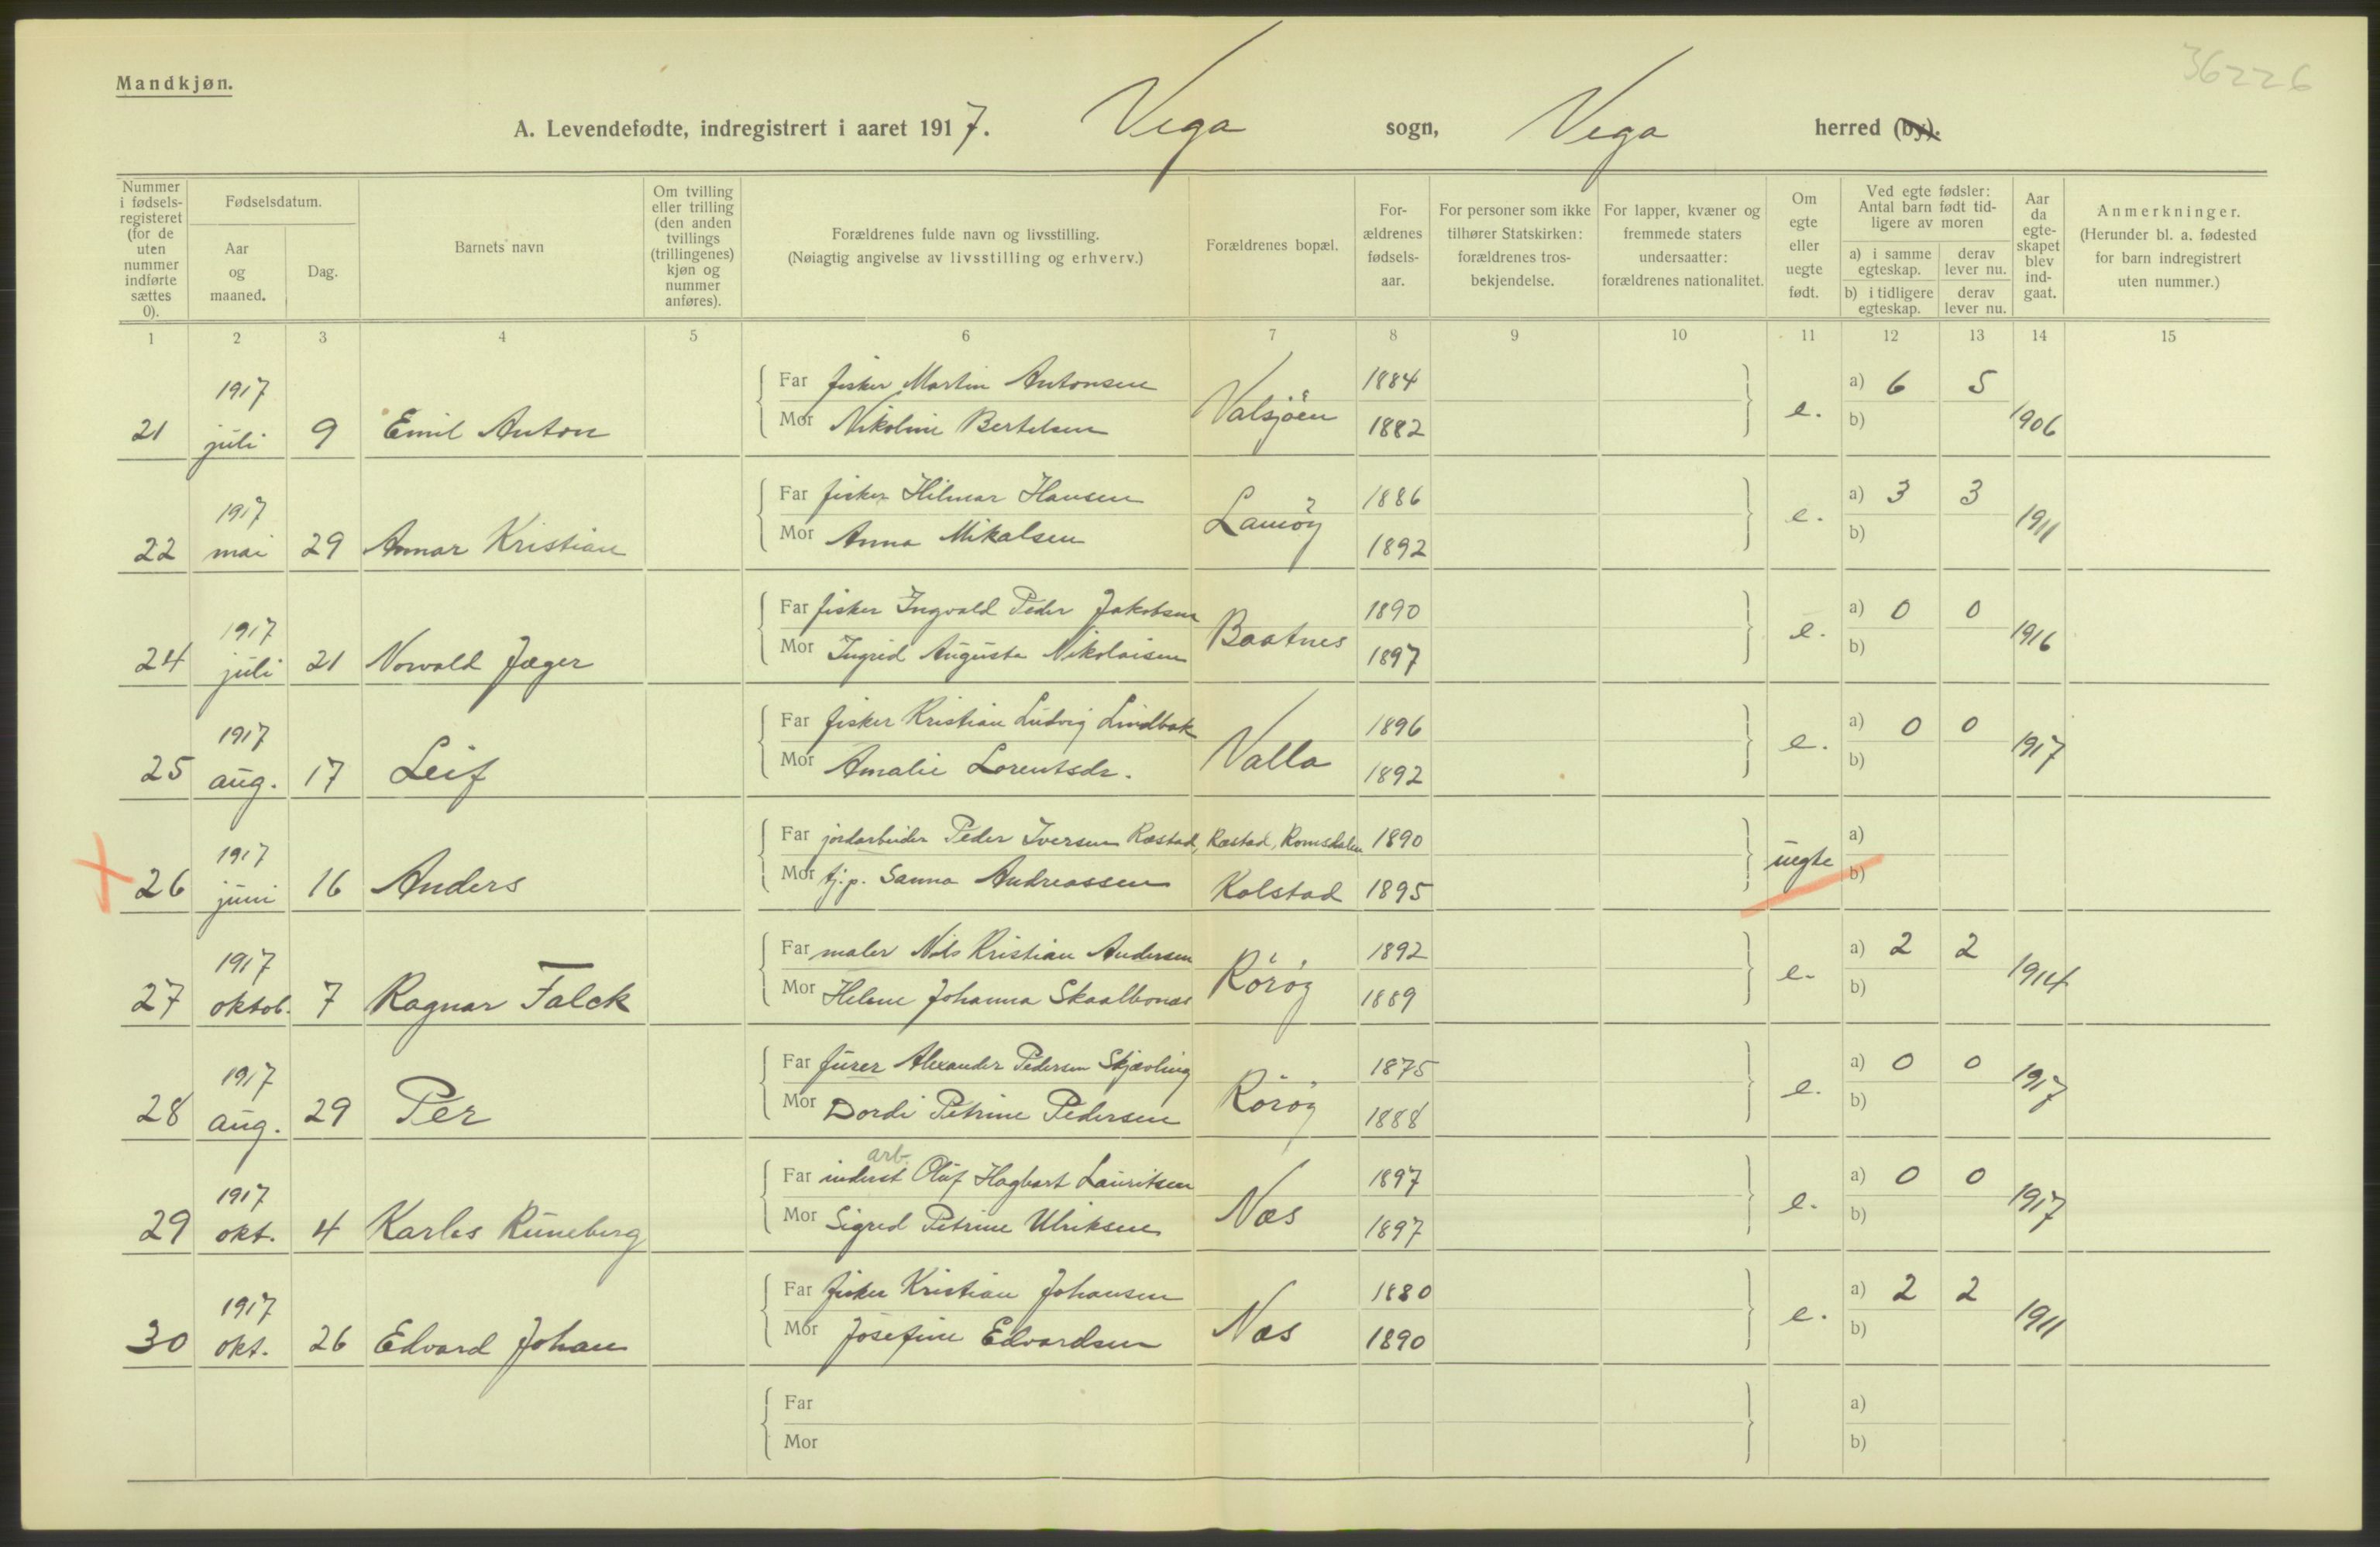 36226
Mandkjøn.
A. Levendefødte, indregistrert i aaret 1917. Vega sogn, Vega herred (by).
Nummer i fødsels-registeret (for de uten nummer indførte sættes 0).
Fødselsdatum.
Aar og maaned.
Dag.
Barnets navn
Om tvilling eller trilling (den anden tvillings (trillingenes) kjøn og nummer anføres).
Forældrenes fulde navn og livsstilling.
(Nøiagtig angivelse av livsstilling og erhverv.)
Forældrenes bopæl.
For-ældrenes fødsels-aar.
For personer som ikke tilhører Statskirken: forældrenes tros-bekjendelse.
For lapper, kvæner og fremmede staters undersaatter: forældrenes nationalitet.
Om egte eller uegte født.
Ved egte fødsler: Antal barn født tid-ligere av moren
a) i samme egteskap. derav lever nu.
b) i tidligere egteskap. derav lever nu.
Aar da egte-skapet blev ind-gaat.
Anmerkninger.
(Herunder bl. a. fødested for barn indregistrert uten nummer.)
1 2 3 4 5 6 7 8 9 10 11 12 13 14 15
1917 Far fisker Martin Antonsen 1884 a) 6 5
21 juli 9 Emil Anton Mor Nikoline Bertelsen Valsjøen 1882 e. b) 1906
1917 Far fisker Hilmar Hansen 1886 a) 3 3
22 mai 29 Annar Kristian Mor Anna Mikalsen Lamøy 1892 e. b) 1911
1917 Far fisker Ingvald Peder Jakobsen 1890 a) 0 0
24 juli 21 Norvald Jæger Mor Ingrid Augusta Nikolaisen Baatnes 1897 e. b) 1916
1917 Far fisker Kristian Ludvig Lindbak 1896 a) 0 0
25 aug. 17 Leif Mor Amalie Lorentsdr. Valla 1892 e. b) 1917
1917 Far jordarbeider Peder Iversen Ræstad, Ræstad, Romsdalen 1890 a)
26 juni 16 Anders Mor tj.p. Sanna Andreassen Kolstad 1895 uegte b)
1917 Far maler Nils Kristian Andersen 1892 a) 2 2
27 oktob. 7 Ragnar Falck Mor Helene Johanna Skaalbones Rörøy 1889 e. b) 1914
1917 Far furer Alexander Pedersen Skjævling 1875 a) 0 0
28 aug. 29 Per Mor Dordi Petrine Pedersen Rörøy 1888 e. b) 1917
arb.
1917 Far inderst Oluf Hagbart Lauritsen 1897 a) 0 0
29 okt. 4 Karles Runeberg Mor Sigrid Petrine Ulriksen Næs 1897 e. b) 1917
1917 Far fisker Kristian Johansen 1880 a) 2 2
30 okt. 26 Edvard Johan Mor Josefine Edvardsen Næs 1890 e. b) 1911
Far a)
Mor b)